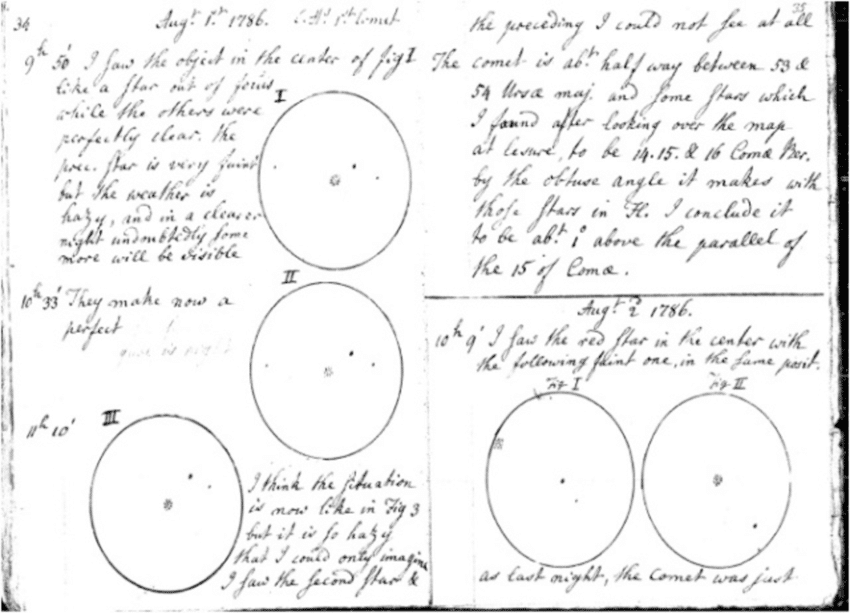 34
Augt. 1st. 1786. C.H's 1st Comet
9h 50' I saw the object in the center of fig I
like a star out of focus
while the others were
perfectly clear. the
prec. star is very faint
but the weather is
hazy, and in a clearer
night undoubtedly some
more will be visible
I
II
10h 33' They make now a
perfect
gure is right
III
11h 10'
I think the situation
is now like in Fig 3
but it is so hazy
that I could only imagine
I saw the second star &
35
the preceding I could not see at all
The comet is abt. half way between 53 &
54 Ursæ maj. and some stars which
I found after looking over the map
at lesure, to be 14. 15. & 16 Comæ Ber.
by the obtuse angle it makes with
those stars in Fl. I conclude it
to be abt. 1° above the parallel of
the 15 of Comæ.
Augt. 2d. 1786.
10h 9' I saw the red star in the center with
the following faint one, in the same posit.
Fig I
Fig II
as last night, the comet was just